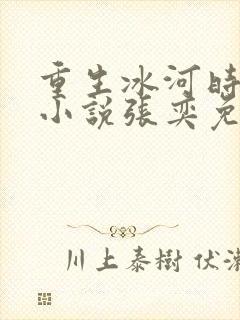 重生冰河時
小說張奕免
川上泰樹 伏瀬